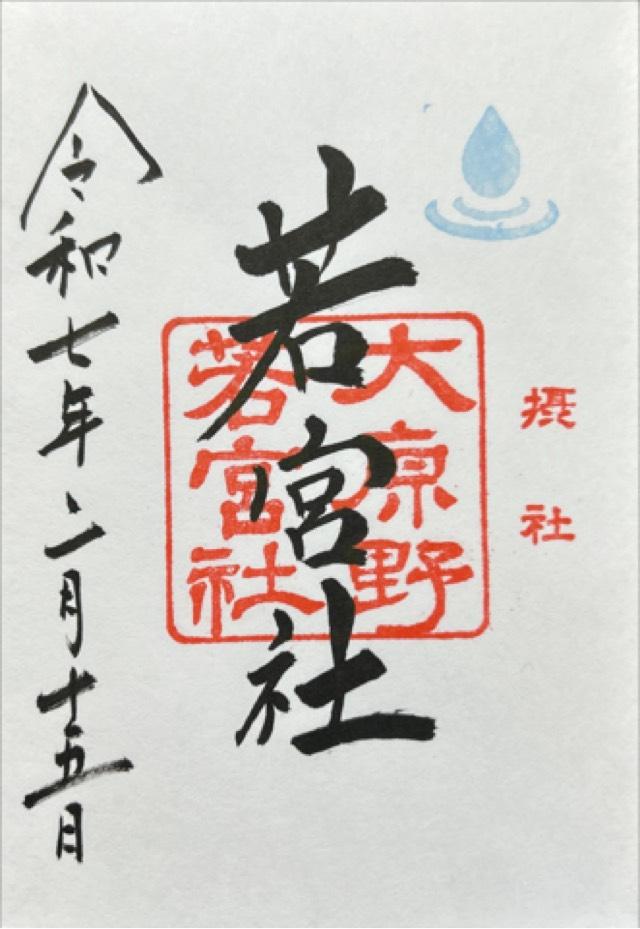 摂社
若宮社
大原野
若宮社
令和七年二月十五日